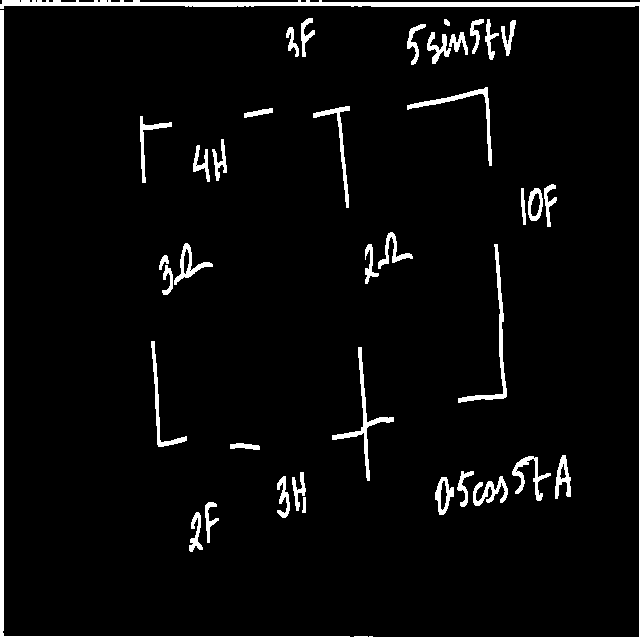 3F
5sin5tV
4H
10F
3Ω
2Ω
3H
0.5cos5tA
2F